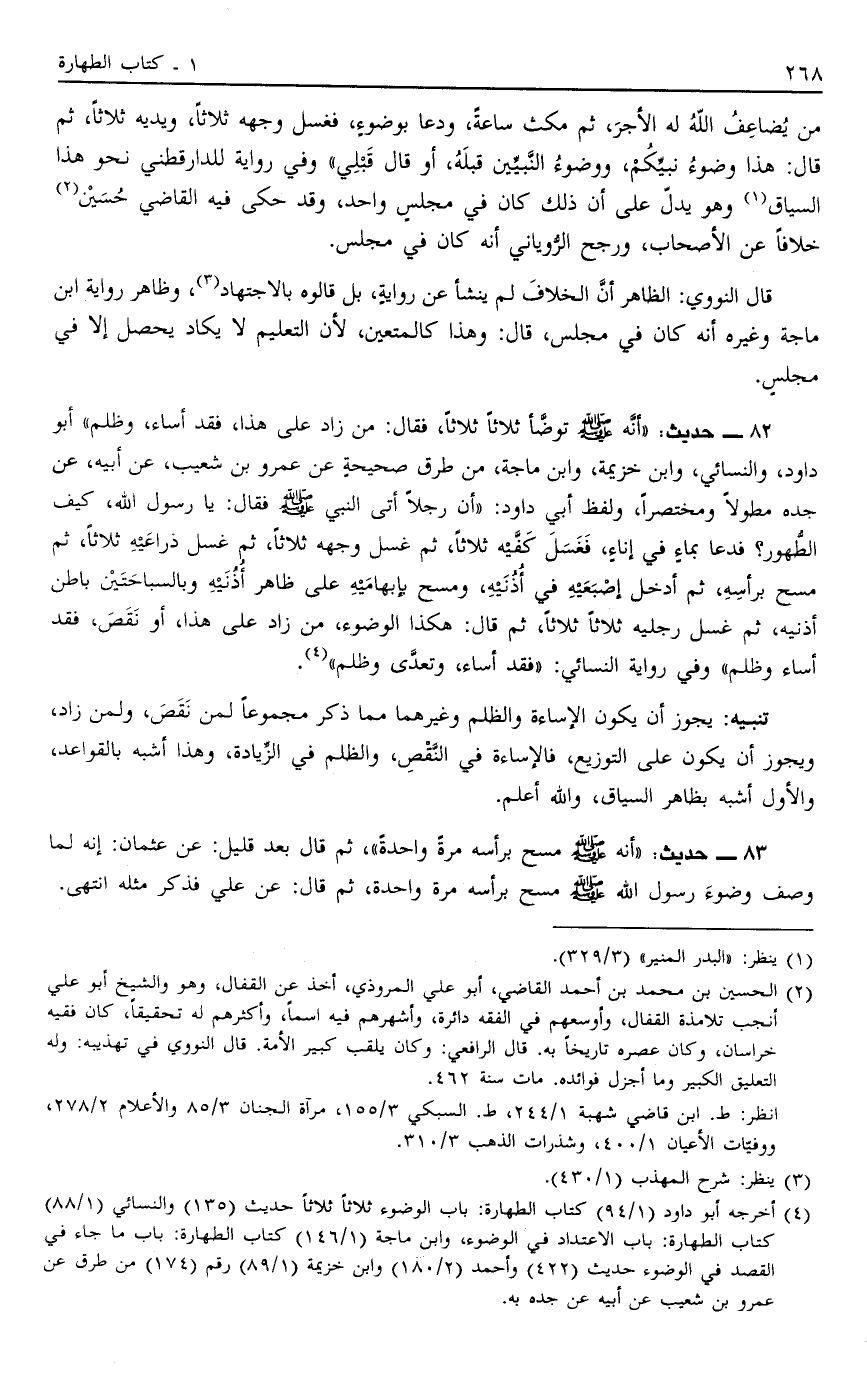 ٢٦٨
١ ـ كتاب الطهارة
من يُضاعِفُ اللّهُ له الأجرَ، ثم مكث ساعةً، ودعا بوضوءٍ، فغسل وجهه ثلاثاً، ويديه ثلاثاً، ثم
قال: هذا وضوءُ نبيِّكُمْ، ووضوءُ النَّبيِّين قبلَهُ، أو قال قَبْلِي» وفي رواية للدارقطني نحو هذا
السياق(١) وهو يدلّ على أن ذلك كان في مجلسٍ واحد، وقد حكى فيه القاضي حُسَيْنْ(٢)
خلافاً عن الأصحاب، ورجح الرُّوياني أنه كان في مجلس.
قال النووي: الظاهر أنَّ الخلافَ لم ينشأ عن روايةٍ، بل قالوه بالاجتهاد(٣)، وظاهر رواية ابن
ماجة وغيره أنه كان في مجلس، قال: وهذا كالمتعين، لأن التعليم لا يكاد يحصل إلا في
مجلسٍ.
٨٢ ـ حديث: «أنَّه ﷺ توضَّأ ثلاثاً ثلاثاً، فقال: من زاد على هذا، فقد أساء، وظلم» أبو
داود، والنسائي، وابن خزيمة، وابن ماجة، من طرق صحيحةٍ عن عمرو بن شعيب، عن أبيه، عن
جده مطولاً ومختصراً، ولفظ أبي داود: «أن رجلاً أتى النبي ﷺ فقال: يا رسول الله، كيف
الطُّهور؟ فدعا بماءٍ في إناءٍ، فَغَسَلَ كَفَّيْه ثلاثاً، ثم غسل وجهه ثلاثاً، ثم غسل ذراعَيْهِ ثلاثاً، ثم
مسح برأسِهِ، ثم أدخل إصْبَعَيْهِ في أُذُنَيْهِ، ومسح بإبهامَيْهِ على ظاهر أُذُنَيْهِ وبالسباحَتَيْنْ باطن
أذنيه، ثم غسل رجليه ثلاثاً ثلاثاً، ثم قال: هكذا الوضوء، من زاد على هذا، أو نَقَصَ، فقد
أساء وظلم» وفي رواية النسائي: «فقد أساء، وتعدَّى وظلم»(٤).
تنبيه: يجوز أن يكون الإساءة والظلم وغيرهما مما ذكر مجموعاً لمن نَقَصَ، ولمن زاد،
ويجوز أن يكون على التوزيع، فالإساءة في النَّقْصِ، والظلم في الزِّيادة، وهذا أشبه بالقواعد،
والأول أشبه بظاهر السياق، والله أعلم.
٨٣ ـ حديث: «أنه ﷺ مسح برأسه مرةً واحدةً»، ثم قال بعد قليل: عن عثمان: إنه لما
وصف وضوءَ رسول الله ﷺ مسح برأسه مرة واحدة، ثم قال: عن علي فذكر مثله انتهى.
(١) ينظر: «البدر المنير» (٣/ ٣٢٩).
(٢) الحسين بن محمد بن أحمد القاضي، أبو علي المروذي، أخذ عن القفال، وهو والشيخ أبو علي
أنجب تلامذة القفال، وأوسعهم في الفقه دائرة، وأشهرهم فيه اسماً، وأكثرهم له تحقيقاً، كان فقيه
خراسان، وكان عصره تاريخاً به. قال الرافعي: وكان يلقب كبير الأمة. قال النووي في تهذيبه: وله
التعليق الكبير وما أجزل فوائده. مات سنة ٤٦٢.
انظر: ط. ابن قاضي شهبة ١/ ٢٤٤، ط. السبكي ٣/ ١٥٥، مرآة الجنان ٣/ ٨٥ والأعلام ٢/ ٢٧٨،
ووفيّات الأعيان ١/ ٤٠٠، وشذرات الذهب ٣/ ٣١٠.
(٣) ينظر: شرح المهذب (١/ ٤٣٠).
(٤) أخرجه أبو داود (١/ ٩٤) كتاب الطهارة: باب الوضوء ثلاثاً ثلاثاً حديث (١٣٥) والنسائي (١/ ٨٨)
كتاب الطهارة: باب الاعتداد في الوضوء، وابن ماجة (١/ ١٤٦) كتاب الطهارة: باب ما جاء في
القصد في الوضوء حديث (٤٢٢) وأحمد (٢/ ١٨٠) وابن خزيمة (١/ ٨٩) رقم (١٧٤) من طرق عن
عمرو بن شعيب عن أبيه عن جده به.